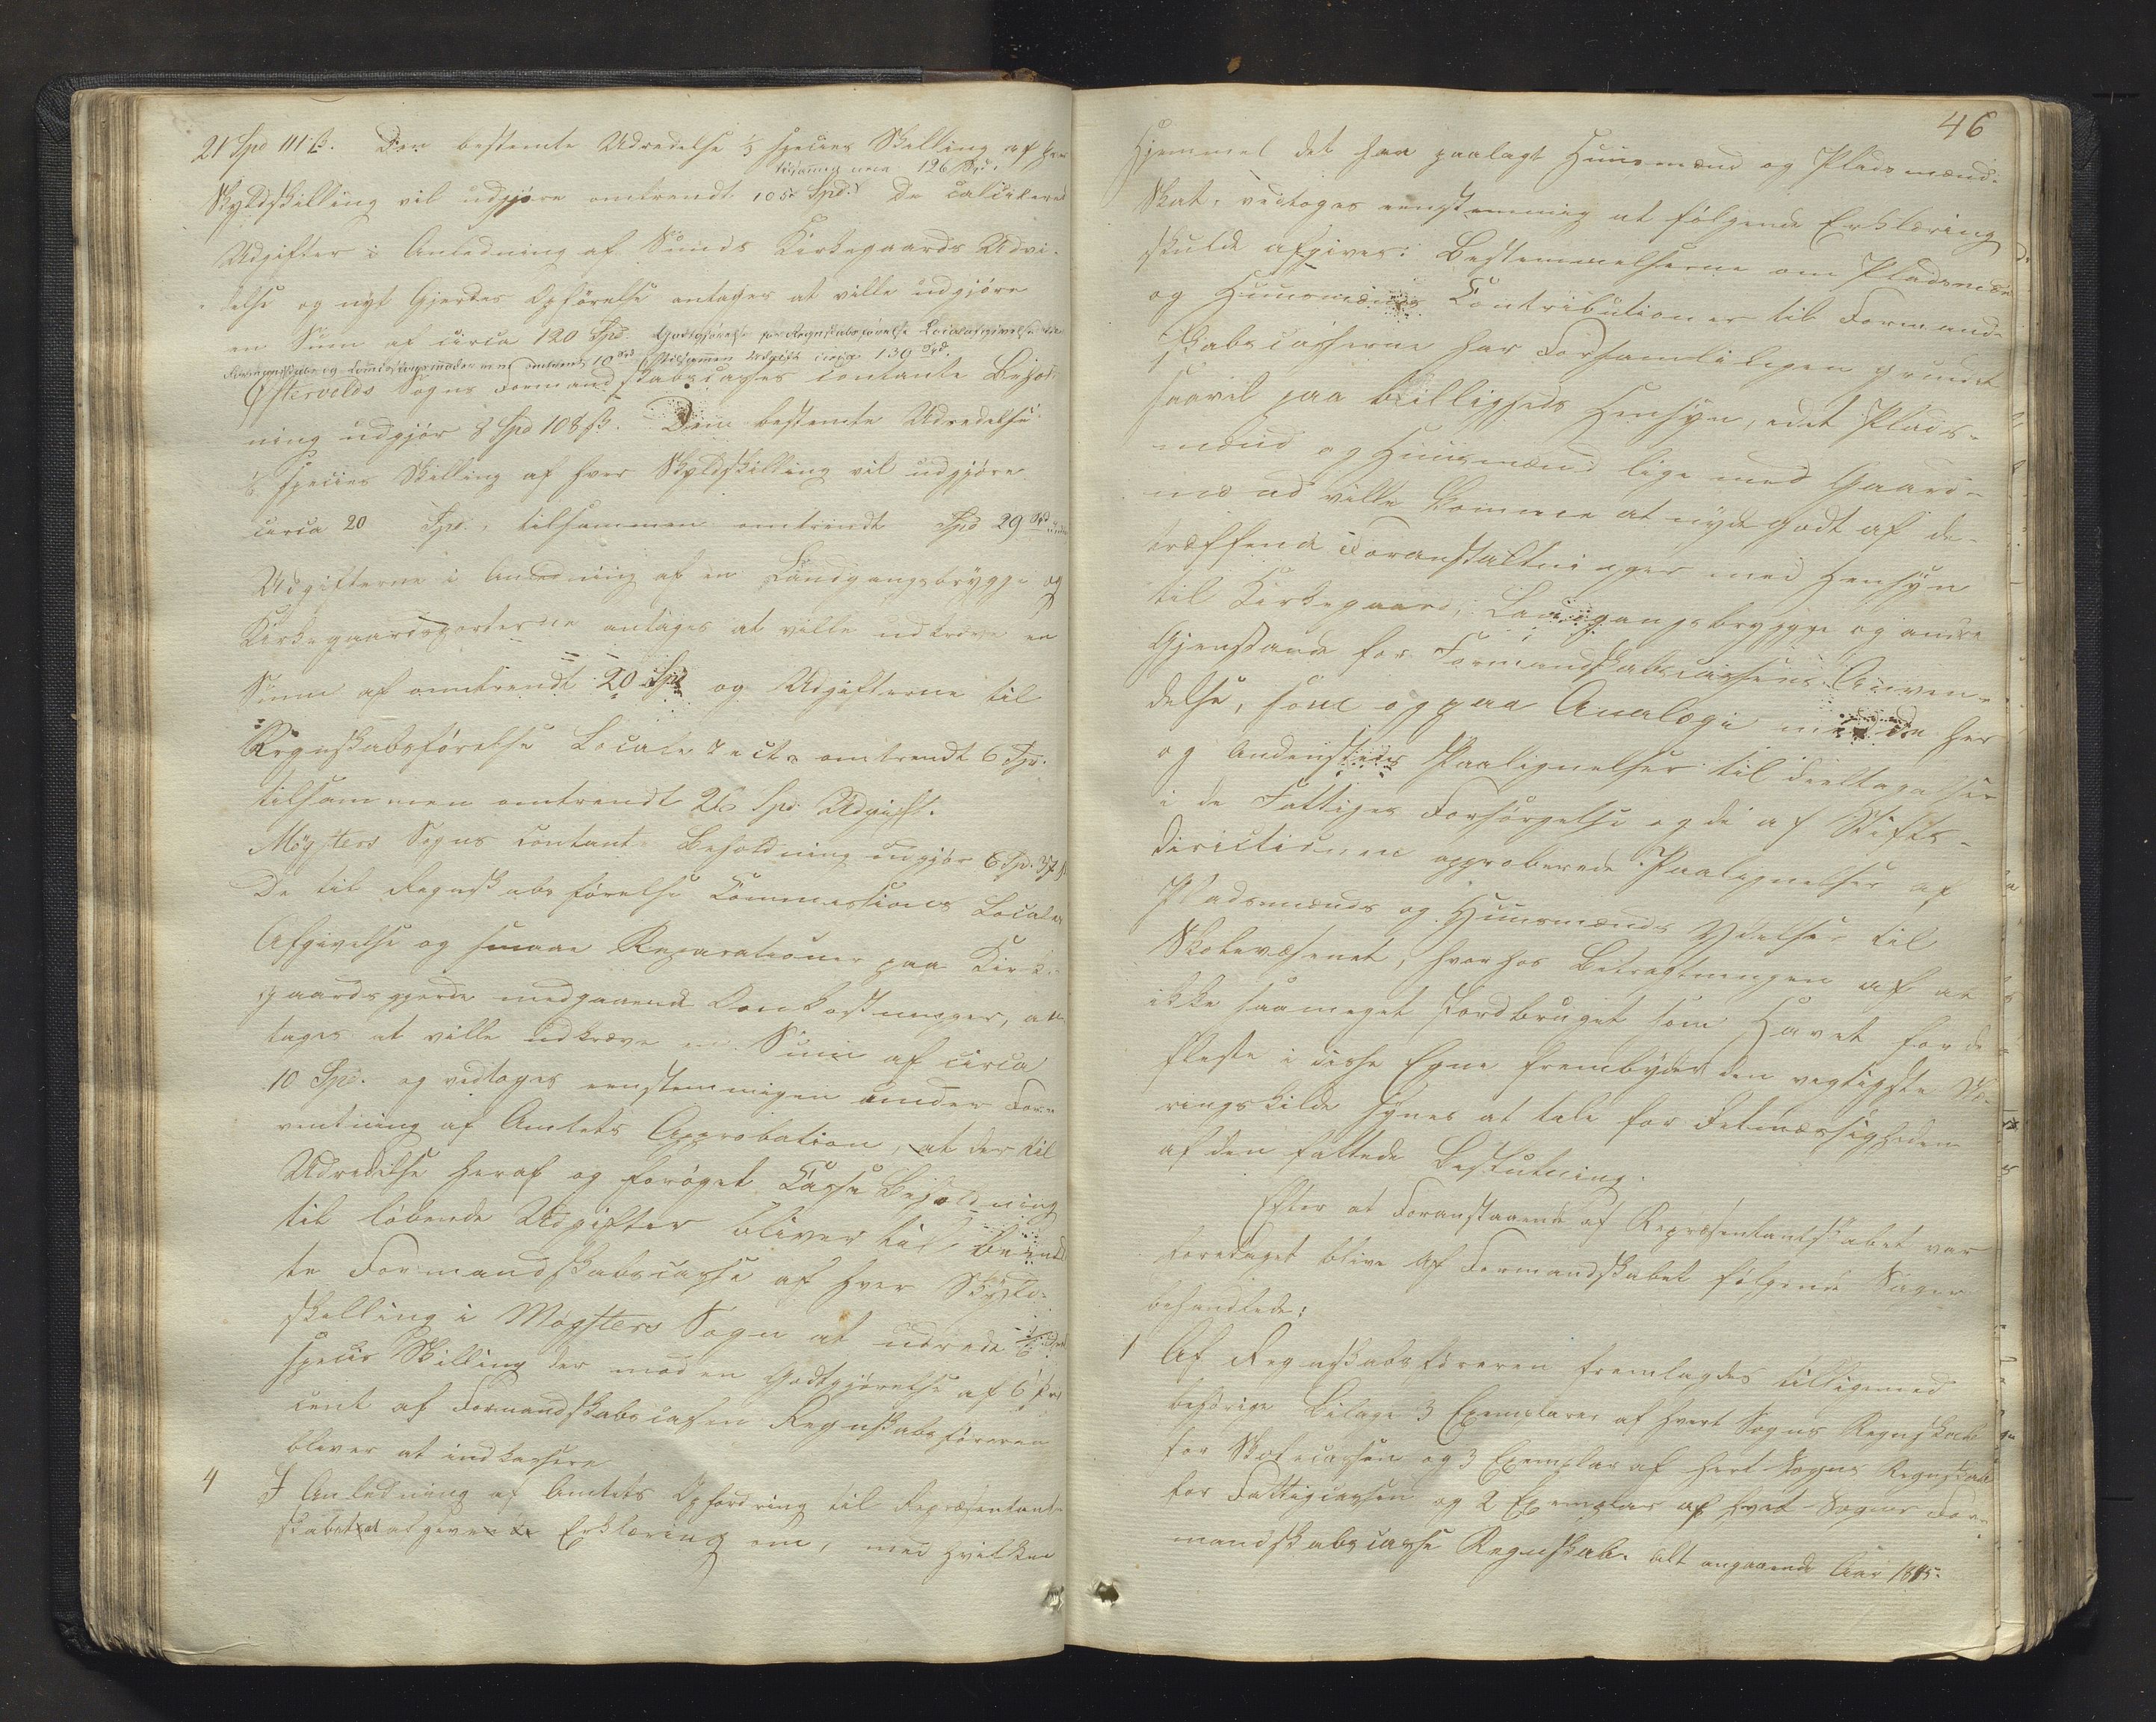 21 Spd 111 ß. Den bestemte Udredelse ⅓ species Skilling af hver
tilsammen circa 126 Spd.
Skyldskilling vil udgjøre omtrendt 105 Spd. De calculerede
Udgifter i Anledning af Sunds Kirkegaards Udvi-
delse og nyt Gjerdes Opførelse antages at ville udgjøre
en Sum af circa 120 Spd. Godtgjørelse for Regnskabsførelse Localafgivelse
omtrendt 10 Spd tilsammen Udgift circa 130 Spd.
Østervolds Sogns Formandskabscasses contante Behold-
ning udgjør 8 Spd 108 ß. Den bestemte Udredelse
species Skilling af hver Skyldskilling vil udgjøre
circa 20 Spd., tilsammen omtrendt Spd 29
Udgifterne i Anledning af en Landgangsbrygge og
Kirkegaardsporterne antages at ville udkræve en
Sum af omtrendt 20 Spd og Udgifterne til
Regnskabsførelse Locale etc. omtrendt 6 Spd.
tilsammen omtrendt 26 Spd Udgift.
Møgsters Sogns contante Beholdning udgjør 6 Spd. 37 ß
De til Regnskabsførelse Commissions Locales
Afgivelse og smaae Reparationer paa Kirke-
gaardsgjerde medgaaende Omkostninger, an-
tages at ville udkræve en Sum af circa
10 Spd. og vedtoges eenstemmigen under For-
ventning af Amtets Approbation, at der til
Udredelse heraf og forøget Casse Beholdning
til løbende Udgifter bliver til
te Formandskabscasse af hver Skyld-
skilling i Møgsters Sogn at udrede
species Skilling der mod en Godtgjørelse af 6 pro
cent af Formandskabscassen Regnskabsføreren
bliver at indkassere.
4 I Anledning af Amtets Opfordring til Repræsentant-
skabet at afgive Erklæring om, med hvilken
46
Hjemmel det har paalagt Huusmænd og Pladsmænd
Skat, vedtoges eenstemmig at følgende Erklæring
skulde afgives: Bestemmelserne om Pladsmæn
og Huusmænds Contributioner til Formand-
skabscasserne har Forsamlingen grundet
saavel paa Billigheds Hensyn, idet Plads-
mænd og Huusmænd lige med Gaard-
mænd ville komme at nyde godt af de
træffende Foranstaltninger med Hensyn
til Kirkegaard, Landgangsbrygge og andre
Gjenstande for Formandskabscassens Anven-
delse, som og paa Analogi med de her
og Andensteds Paalignelser til Deeltagelse
i de Fattiges Forsørgelse og de af Stifts-
directionen approberede Paalignelser af
Pladsmænds og Huusmænds Ydelser til
Skolevæsenet, hvorhos Betragtningen af at
ikke saameget Jordbruget som Havet for de
fleste i disse Egne frembyder den vigtigste Næ-
ringskilde synes at tale for Retmæssigheden
af den fattede Beslutning.
Efter at Foranstaaende af Repræsentantskabet var
foretaget bleve af Formandskabet følgende Sager
behandlede:
1 Af Regnskabsføreren fremlagdes tilligemed
behørige Bilage 3 Exemplarer af hvert Sogns Regnskab
for Skolecassen og 3 Exemplar af hvert Sogns Regnskab
for Fattigcassen og 2 Exemplar af hvert Sogns For-
mandskabscasse Regnskab. Alt angaaende Aar 1845.